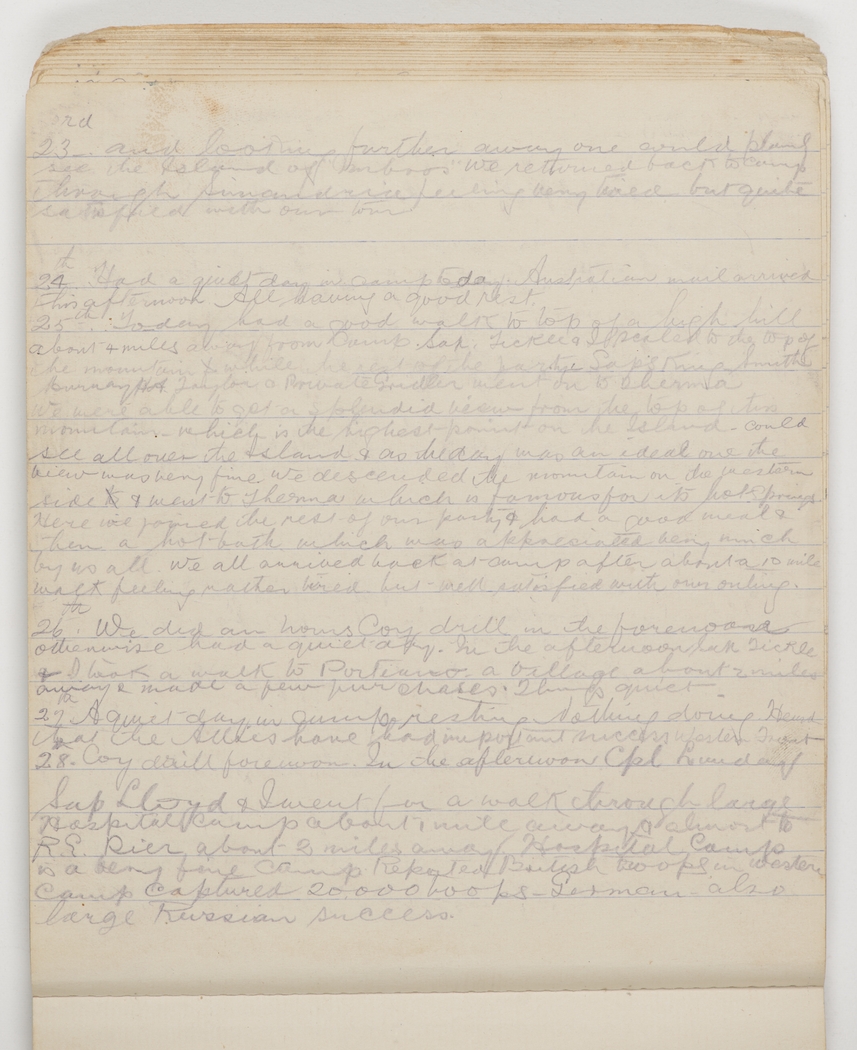 23rd. and looking further away one could plainly
see the Island of "Imbros" We returned back to Camp
through Sunandrice feeling very tired but quite
satisfied with our tour.
24th. Had a quiet day in camp today. Australian mail arrived
this afternoon All having a good rest.
25th. Today had a good walk to top of a high hill
about 4 miles away from Camp. Sap. Tickle & I scaled to the top of
the mountain & while the rest of the party Sap's King Smith
Burnay Taylor & Private went on to Therma
We were able to get a splendid view from the top of this
mountain which is the highest point on the Island - could
see all over the Island & as the day was an ideal one the
view was very fine. We descended the mountain on the western
side & went to Therma which is famous for its hot springs
Here we joined the rest of our party & had a good meal &
then a hot bath which was appreciated very much
by us all. We all arrived back at camp after about a 10 mile
walk feeling rather tired but well satisfied with our outing.
26th. We did an hours Coy drill in the forenoon
otherwise had a quiet day. In the afternoon Sap Tickle
& I took a walk to Portiano. a village about 2 miles
away & made a few purchases. Things quiet
27th A quiet day in camp resting Nothing doing Heard
that the Allies have had important success Western Front
28th. Coy drill forenoon. In the afternoon Cpl
Sap Lloyd & I went for a walk through large
Hospital Camp about 1 mile away & almost to
R.E. Pier about 2 miles away Hospital Camp
is a very fine camp Reported British troops in western
Camp Captured 20.000 troops - German - also
large Russian success.